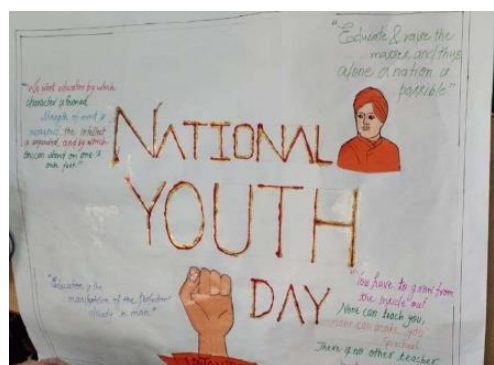 "Educate & raise the
masses, and thus
alone a nation is
possible"
"We want education by which
character is formed,
strength of mind is
increased, the intellect
is expanded, and by which
one can stand on one's
own feet."
NATIONAL
YOUTH
DAY
"Education is the
manifestation of the perfection
already in man."
"You have to grow from
the inside out
None can teach you,
none can make you
spiritual
There is no other teacher